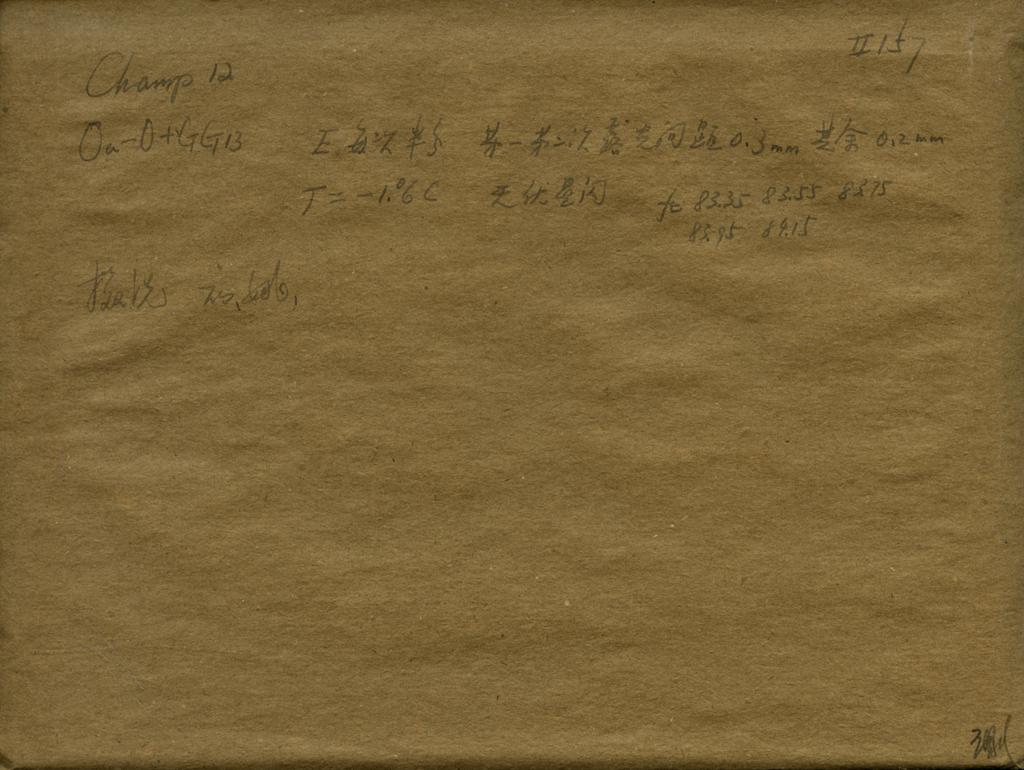 II 157
Champ 12
Oa-O+GG13 E. 每次半分 第一第二次露光间距0.3mm 其余 0.2mm
T=-1.°6C 无伏星闪 fc 83.35 83.55 83.75
83.95 84.15